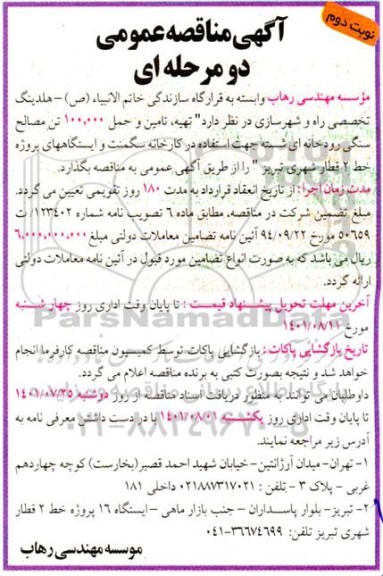 نوبت دوم
آگهی مناقصه عمومی
دو مرحله ای
مؤسسه مهندسی رهاب وابسته به قرارگاه سازندگی خاتم الانبیاء (ص) – هلدینگ
تخصصی راه و شهرسازی در نظر دارد" تهیه، تامین و حمل ۱۰۰,۰۰۰ تن مصالح
سنگی رودخانه ای شسته جهت استفاده در کارخانه سگمنت و ایستگاههای پروژه
خط ۲ قطار شهری تبریز " را از طریق آگهی عمومی به مناقصه بگذارد.
مدت زمان اجرا: از تاریخ انعقاد قرارداد به مدت ۱۸۰ روز تقویمی تعیین می گردد.
مبلغ تضمین شرکت در مناقصه، مطابق ماده ۶ تصویب نامه شماره ۱۲۳۴۰۲/ت
۵۰۶۵۹ مورخ ۹۴/۰۹/۲۲ آئین نامه تضامین معاملات دولتی مبلغ ۶,۰۰۰,۰۰۰,۰۰۰
ریال می باشد که به صورت انواع تضامین مورد قبول در آئین نامه معاملات دولتی
ارائه گردد.
آخرین مهلت تحویل پیشنهاد قیمت : تا پایان وقت اداری روز چهارشنبه
مورخ ۱۴۰۱/۰۸/۱۱
تاریخ بازگشایی پاکات : بازگشایی پاکات توسط کمیسیون مناقصه کارفرما انجام
خواهد شد و نتیجه بصورت کتبی به برنده مناقصه اعلام می گردد.
داوطلبان می توانند به منظور دریافت اسناد مناقصه از روز دوشنبه ۱۴۰۱/۰۷/۲۵
تا پایان وقت اداری روز یکشنبه ۱۴۰۱/۰۸/۰۱ با در دست داشتن معرفی نامه به
آدرس زیر مراجعه نمایند.
۱- تهران- میدان آرژانتین- خیابان شهید احمد قصیر(بخارست) کوچه چهاردهم
غربی - پلاک ۳ - تلفن : ۰۲۱۸۸۷۳۱۷۰۲۱ داخلی ۱۸۱
۲- تبریز- بلوار پاسداران – جنب بازار ماهی – ایستگاه ۱۶ پروژه خط ۲ قطار
شهری تبریز تلفن: ۳۶۶۷۴۶۹۹-۰۴۱
موسسه مهندسی رهاب
ParsNamadData